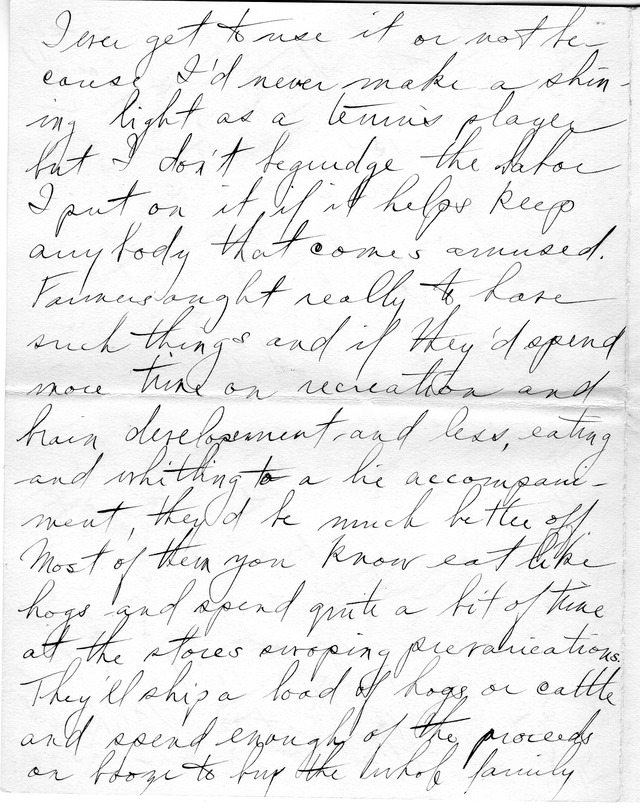 I ever get to use it or not be-
cause I'd never make a shin-
ing light as a tennis player
but I don't begudge the labor
I put on it if it helps keep
anybody that comes amused.
Farmers ought really to have
such things and if they'd spend
more time on recreation and
brain development and less, eating
and whittling to a lie accompani-
ment, they'd be much better off
Most of them you know eat like
hogs and spend quite a bit of time
at the stores swoping prevarications.
They'll ship a load of hogs or cattle
and spend enough of the proceeds
on booze to buy the whole family